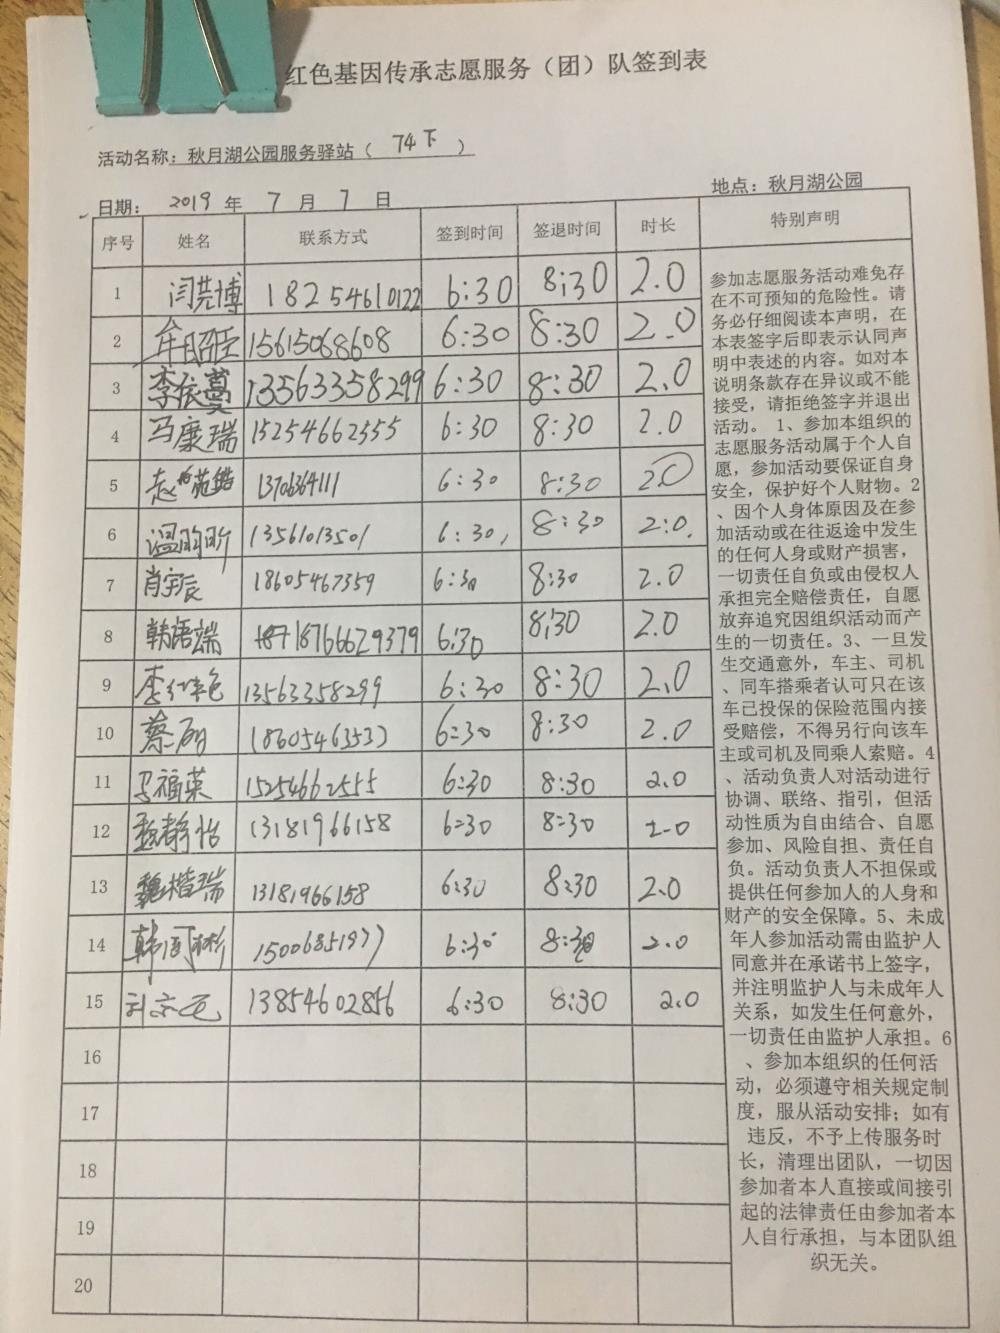 红色基因传承志愿服务（团）队签到表
活动名称：秋月湖公园服务驿站（ 74下 ）
日期： 2019 年 7 月 7 日
地点：秋月湖公园
序号 姓名 联系方式 签到时间 签退时间 时长 特别声明
1 闫芸博 18254610122 6:30 8:30 2.0
2 15615068608 6:30 8:30 2.0
3 李依蔓 13563358299 6:30 8:30 2.0
4 马康瑞 15254662555 6:30 8:30 2.0
5 6:30 8:30 2.0
6 13561013501 6:30 8:30 2.0
7 肖宇辰 18605467359 6:30 8:30 2.0
8 韩语端 18766629379 6:30 8:30 2.0
9 13563358299 6:30 8:30 2.0
10 18605463533 6:30 8:30 2.0
11 马福英 15254662555 6:30 8:30 2.0
12 魏静怡 13181966158 6:30 8:30 2.0
13 魏楷瑞 13181966158 6:30 8:30 2.0
14 15006851977 6:30 8:30 2.0
15 13854602856 6:30 8:30 2.0
16
17
18
19
20
参加志愿服务活动难免存
在不可预知的危险性。请
务必仔细阅读本声明，在
本表签字后即表示认同声
明中表述的内容。如对本
说明条款存在异议或不能
接受，请拒绝签字并退出
活动。 1、参加本组织的
志愿服务活动属于个人自
愿，参加活动要保证自身
安全，保护好个人财物。2
、因个人身体原因及在参
加活动或在往返途中发生
的任何人身或财产损害，
一切责任自负或由侵权人
承担完全赔偿责任，自愿
放弃追究因组织活动而产
生的一切责任。3、一旦发
生交通意外，车主、司机
、同车搭乘者认可只在该
车已投保的保险范围内接
受赔偿，不得另行向该车
主或司机及同乘人索赔。4
、活动负责人对活动进行
协调、联络、指引，但活
动性质为自由结合、自愿
参加、风险自担、责任自
负。活动负责人不担保或
提供任何参加人的人身和
财产的安全保障。5、未成
年人参加活动需由监护人
同意并在承诺书上签字，
并注明监护人与未成年人
关系，如发生任何意外，
一切责任由监护人承担。6
、参加本组织的任何活
动，必须遵守相关规定制
度，服从活动安排；如有
违反，不予上传服务时
长，清理出团队，一切因
参加者本人直接或间接引
起的法律责任由参加者本
人自行承担，与本团队组
织无关。